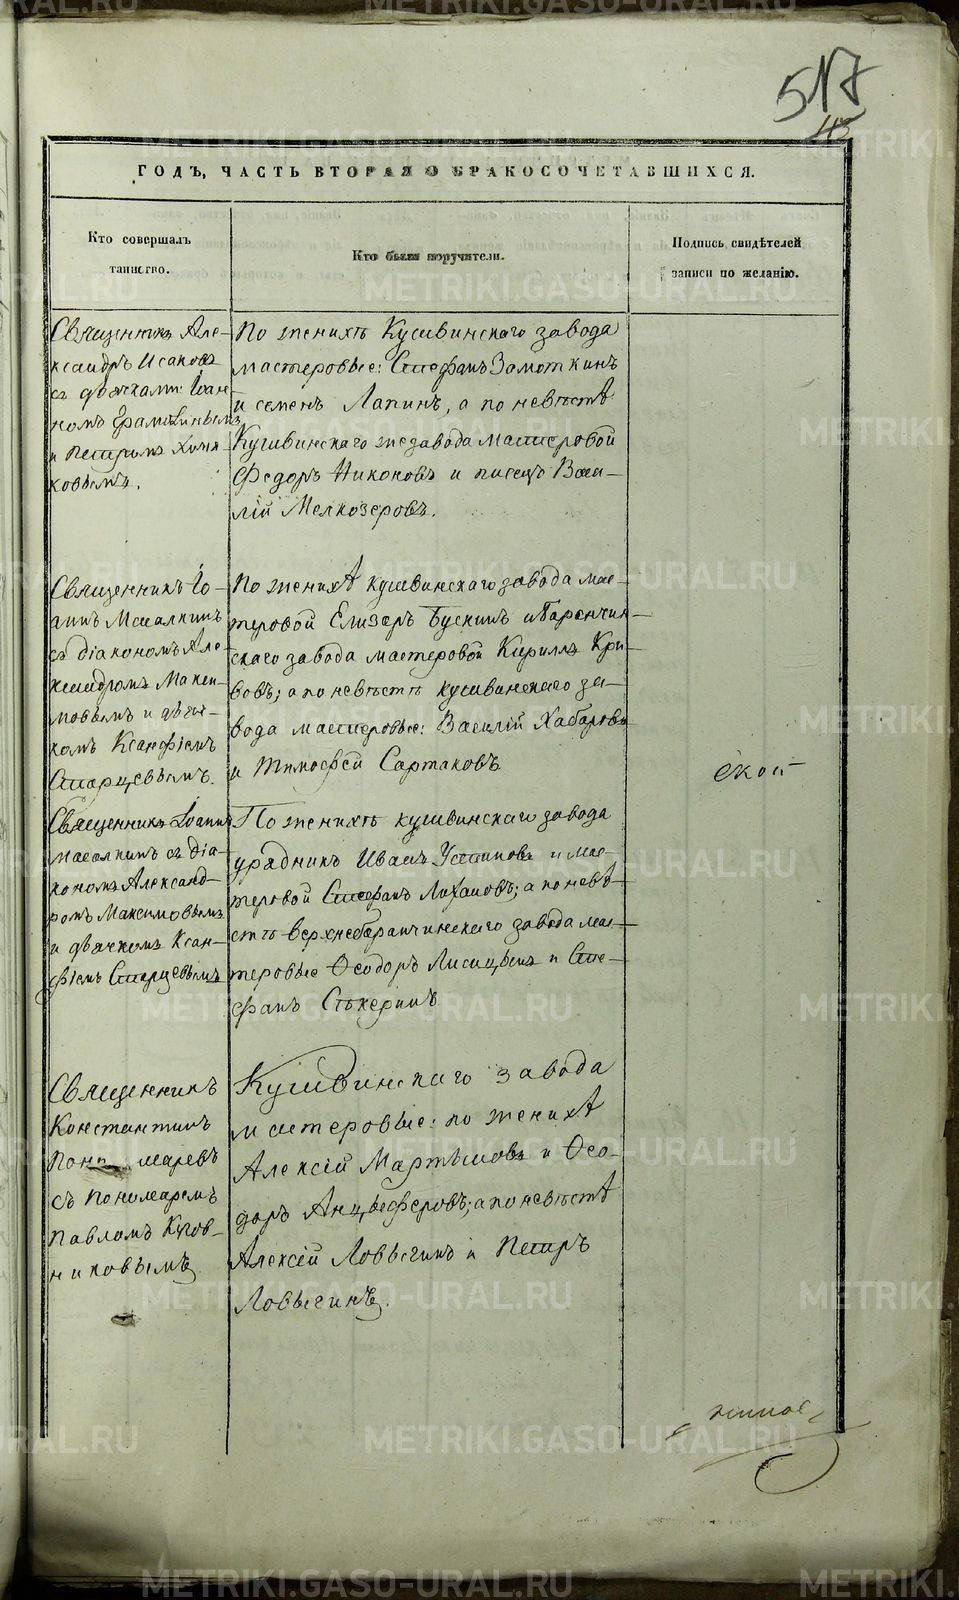 517
43
ГОДЪ, ЧАСТЬ ВТОРАЯ О БРАКОСОЧЕТАВШИХСЯ.
Кто совершалъ
таинство.
Кто были поручители.
Подпись свидѣтелей
записи по желанію.
Священникъ Але-
ксандръ Исаковъ
съ дьячками: Іоан-
номъ
и Петромъ Хомя-
ковымъ.
По женихѣ Кушвинскаго завода
мастеровые: Стефанъ Замоткинъ
и семенъ Лапинъ, а по невѣстѣ
Кушвинскаго жезавода мастеровой
Федоръ Никоновъ и писецъ Васи-
лій Мелкозеровъ.
Священникъ Іо-
аннъ Масалкинъ
съ діакономъ Але-
ксандромъ Макси-
мовымъ и дьяч-
комъ Ксанфіемъ
Старцевымъ.
По женихѣ кушвинскаго завода мас-
теровой Елизаръ Бускинъ и Баранчин-
скаго завода мастеровой Кириллъ Кри-
вовъ; а по невѣстѣ кушвинскаго за-
вода мастеровые: Василій Хабаровъ
и Тимофей Сартаковъ
ской
Священникъ Іоаннъ
Масалкинъ съ діа-
кономъ Александ-
ромъ Максимовымъ
и дьячкомъ Ксан-
фіемъ Старцевымъ
По женихѣ кушвинскаго завода
урядникъ Иванъ Устиновъ и мас-
теровой Стефанъ а по невѣ-
стѣ Верхнебаранчинскаго завода мас-
теровые Ѳеодоръ Лисицынъ и Сте-
фанъ Стѣхеринъ
Священникъ
Константинъ
Пономаревъ
съ Пономаремъ
Павломъ Кузов-
никовымъ
Кушвинскаго завода
мастеровые: по женихѣ
Алексій Мартыновъ и Ѳео-
доръ Анцыферовъ; а по невѣстѣ
Алексій Ловыгинъ и Петръ
Ловыгинъ.
METRIKI.GASO-URAL.RU